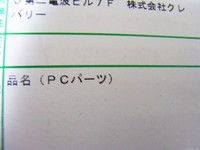 第二電波ビル7F 株式会社クレ
バリー
品名(PCパーツ)